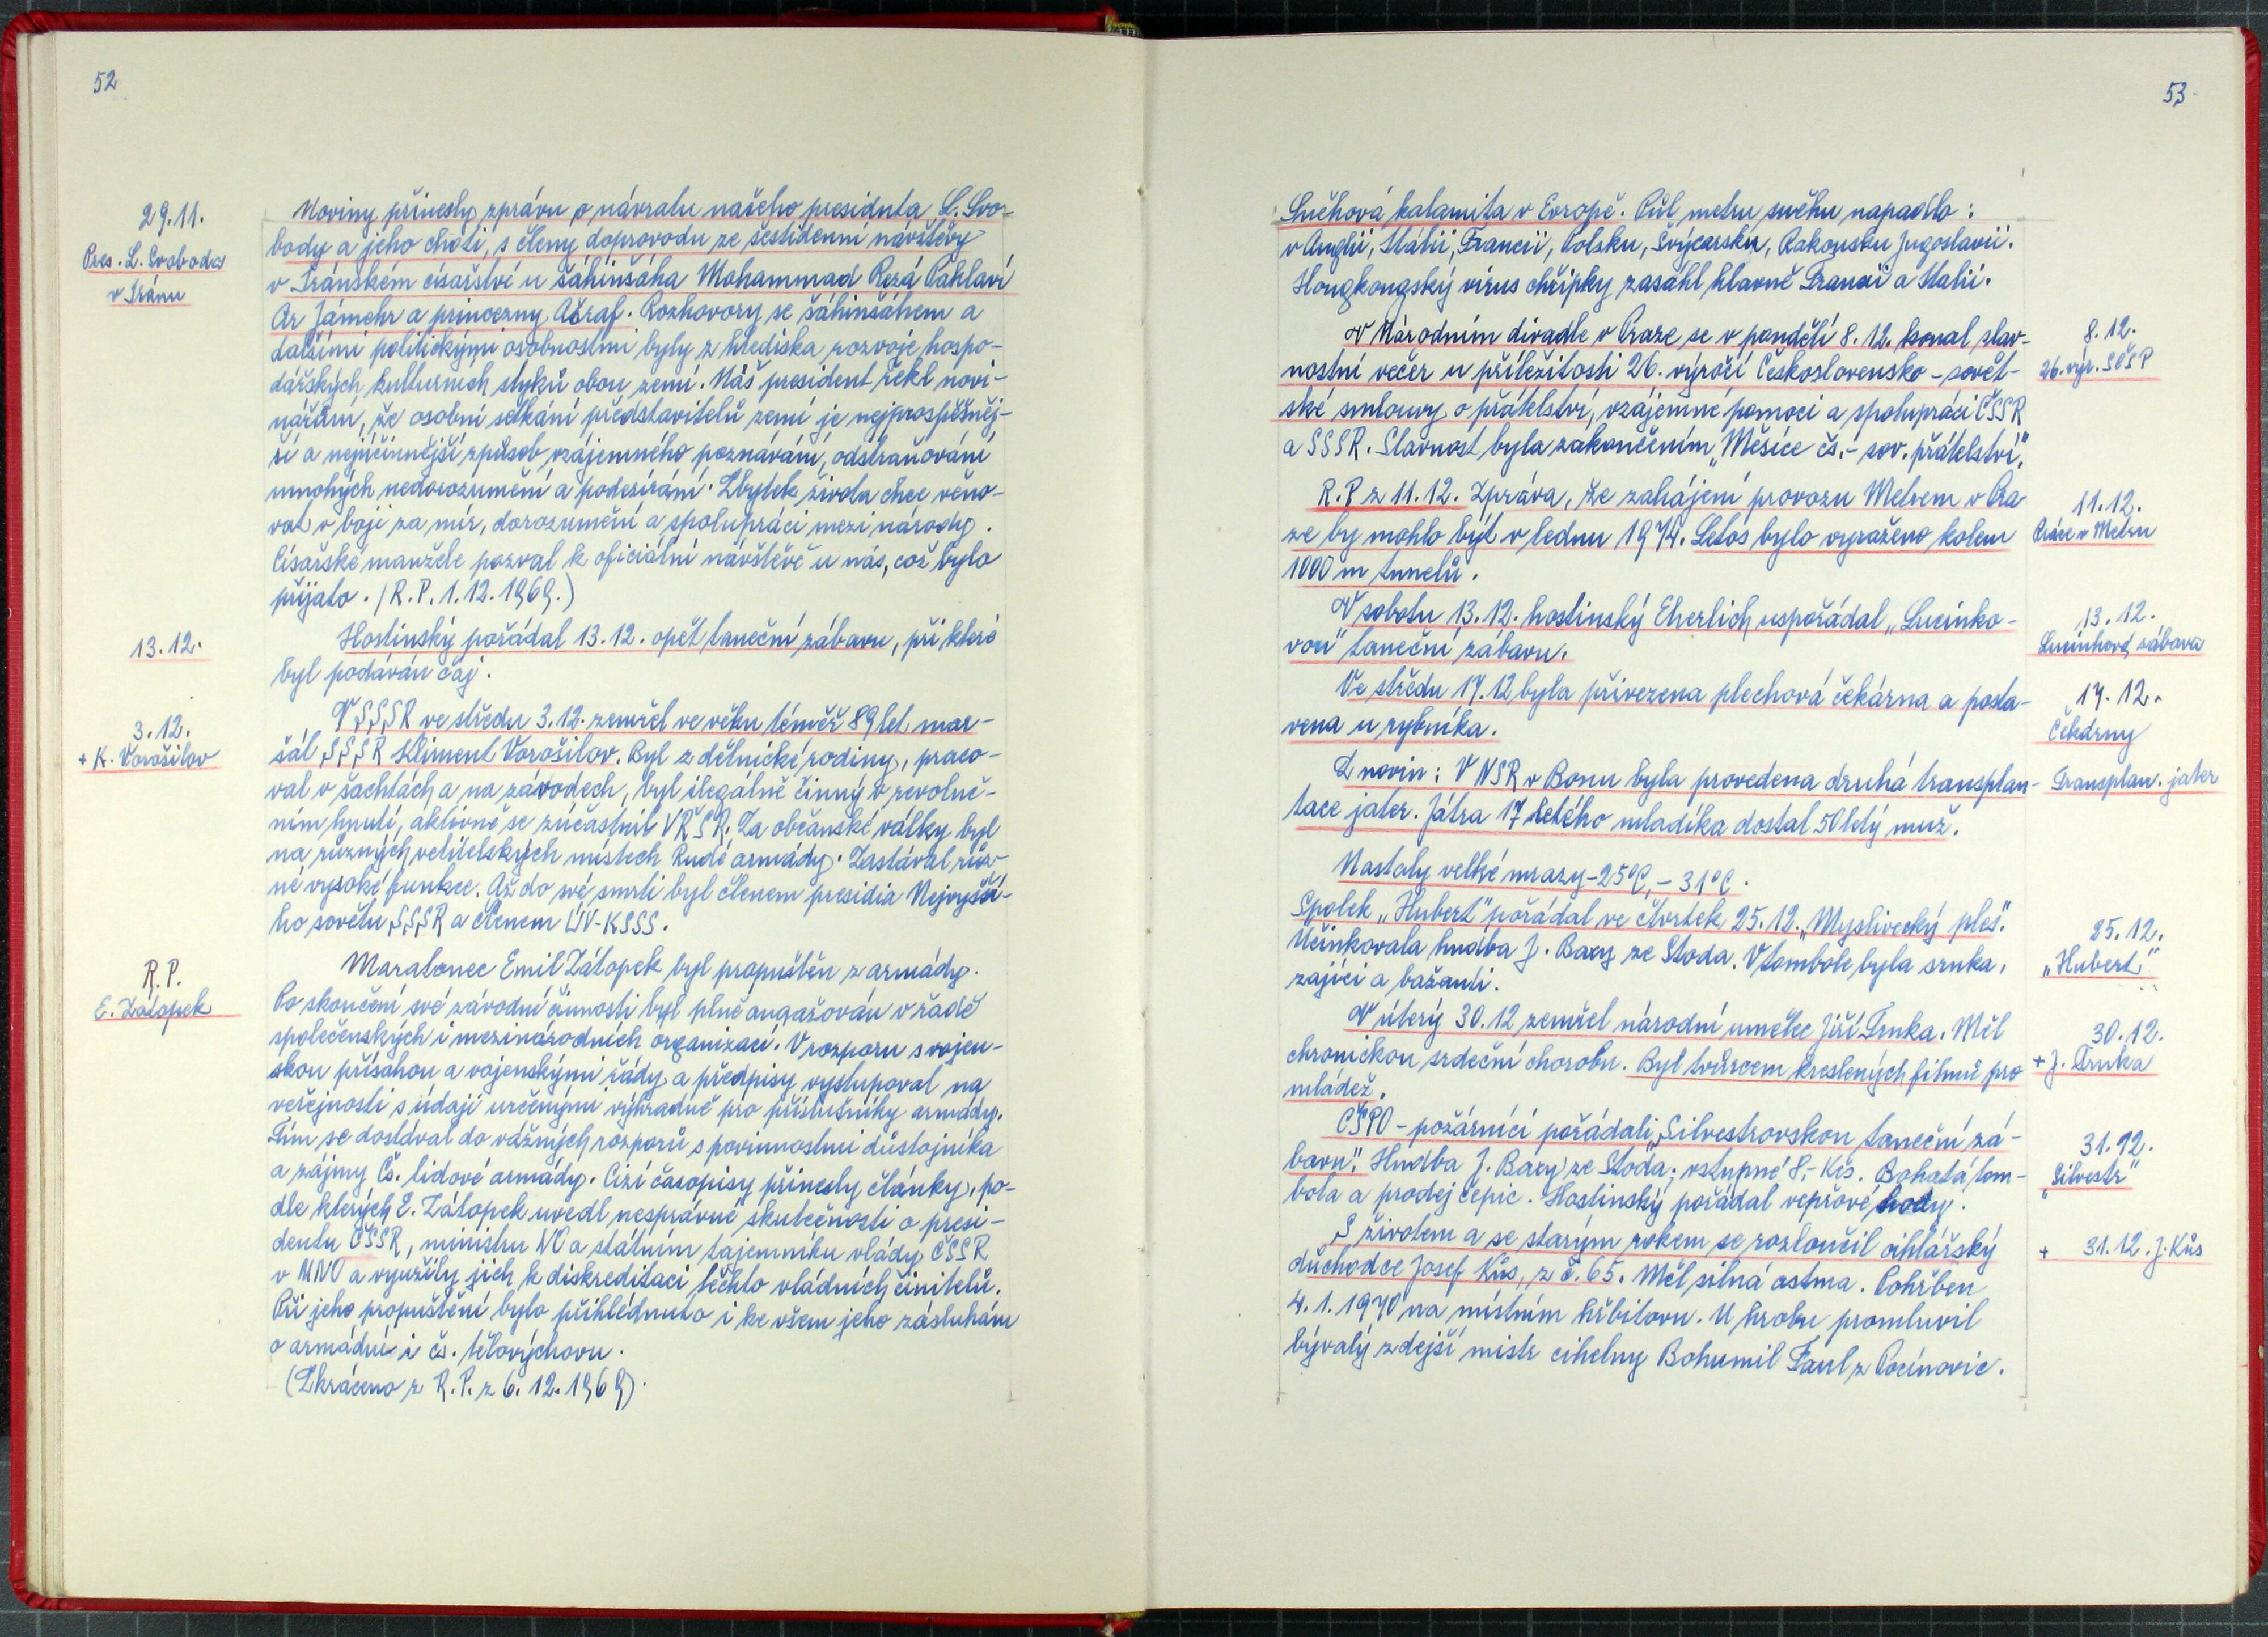 52
29.11.
Pres. L. Svoboda
v Iránu
Noviny přinesly zprávu o návratu našeho presidnta L. Svo-
body a jeho choti, s členy doprovodu ze šestidenní návštěvy
v Íránském císařství u šáhinšáha Mohammad Rezá Páhlaví
Ar Jámehr a princezny Ašraf. Rozhovory se šáhinšáhem a
dalšími politickými osobnostmi byly z hlediska rozvoje hospo-
dářských, kulturních styků obou zemí. Náš president řekl novi-
nářům, že osobní setkání představitelů zemí je nejprospěšněj-
ší a nejúčinnější způsob vzájemného poznávání, odstraňování
mnohých nedorozumění a podezírání. Zbytek života chce věno-
vat v boji za mír, dorozumění a spolupráci mezi národy.
Císařské manžele pozval k oficiální návštěvě u nás, což bylo
přijato. (R.P. 1.12.1969.)
13.12.
Hostinský pořádal 13.12. opět taneční zábavu, při které
byl podáván čaj.
3.12.
+ K. Vorošilov
V SSSR ve středu 3.12. zemřel ve věku téměř 89 let mar-
šál SSSR Kliment Vorošilov. Byl z dělnické rodiny, praco-
val v šachtách a na závodech, byl ilegálně činný v revoluč-
ním hnutí, aktivně se zúčastnil VŘSR. Za občanské války byl
na různých velitelských místech Rudé armády. Zastával růz-
né vysoké funkce. Až do své smrti byl členem presidia Nejvyšší-
ho sovětu SSSR a členem ÚV-KSSS.
R.P.
E. Zátopek
Maratonec Emil Zátopek byl propuštěn z armády.
Po skončení své závodní činnosti byl plně angažován v řadě
společenských i mezinárodních organizací. V rozporu s vojen-
skou přísahou a vojenskými řády a předpisy vystupoval na
veřejnosti s údaji určenými výhradně pro příslušníky armády.
Tím se dostával do vážných rozporů s povinnostmi důstojníka
a zájmy Čs. lidové armády. Cizí časopisy přinesly články, po-
dle kterých E. Zátopek uvedl nesprávné skutečnosti o presi-
dentu ČSSR, ministru NO a státním tajemníku vlády ČSSR
v MNO a využily jich k diskreditaci těchto vládních činitelů.
Při jeho propuštění bylo přihlédnuto i ke všem jeho zásluhám
o armádní i čs. tělovýchovu.
(Zkráceno z R.P. z 6.12.1969).
53
Sněhová kalamita v Evropě. Půl metru sněhu napadlo:
v Anglii, Itálii, Francii, Polsku, Švýcarsku, Rakousku Jugoslavii.
Hongkongský virus chřipky zasáhl hlavně Francii a Italii.
V Národním divadle v Praze se v pondělí 8.12. konal slav-
nostní večer u příležitosti 26. výročí Československo - sovět-
ské smlouvy o přátelství, vzájemné pomoci a spolupráci ČSSR
a SSSR. Slavnost byla zakončením „Měsíce čs.- sov. přátelství".
8.12.
26. výr. SČSP
R.P. z 11.12. Zpráva, že zahájení provozu Metrem v Pra
ze by mohlo být v lednu 1974. Letos bylo vyraženo kolem
1000 m tunelů.
11.12.
Práce v Metru
V sobotu 13.12. hostinský Eherlich uspořádal „Lucinko-
vou" taneční zábavu.
13.12.
Lucinková zábava
Ve středu 17.12 byla přivezena plechová čekárna a posta-
vena u rybníka.
17.12.
Čekárny
Z novin: V NSR v Bonu byla provedena druhá transplan-
tace jater. Játra 17 letého mladíka dostal 50letý muž.
Transplan. jater
Nastaly velké mrazy -25°C, -31°C.
Spolek „Hubert" pořádal ve čtvrtek 25.12. „Myslivecký ples".
Účinkovala hudba J. Baxy ze Stoda. V tombole byla srnka,
zajíci a bažanti.
25.12.
„Hubert"
V úterý 30.12 zemřel národní umělec Jiří Trnka. Měl
chronickou srdeční chorobu. Byl tvůrcem kreslených filmů pro
mládež.
30.12.
+ J. Trnka
ČSPO - požárníci pořádali „Silvestrovskou taneční zá-
bavu". Hudba J. Baxy ze Stoda; vstupné 8,- Kčs. Bohatá tom-
bola a prodej čepic. Hostinský pořádal vepřové hody.
31.12.
„Silvestr"
S životem a se starým rokem se rozloučil cihlářský
důchodce Josef Kůs, z č. 65. Měl silná astma. Pohřben
4.1.1970 na místním hřbitovu. U hrobu promluvil
bývalý zdejší mistr cihelny Bohumil Faul z Pocínovic.
+ 31.12. J. Kůs